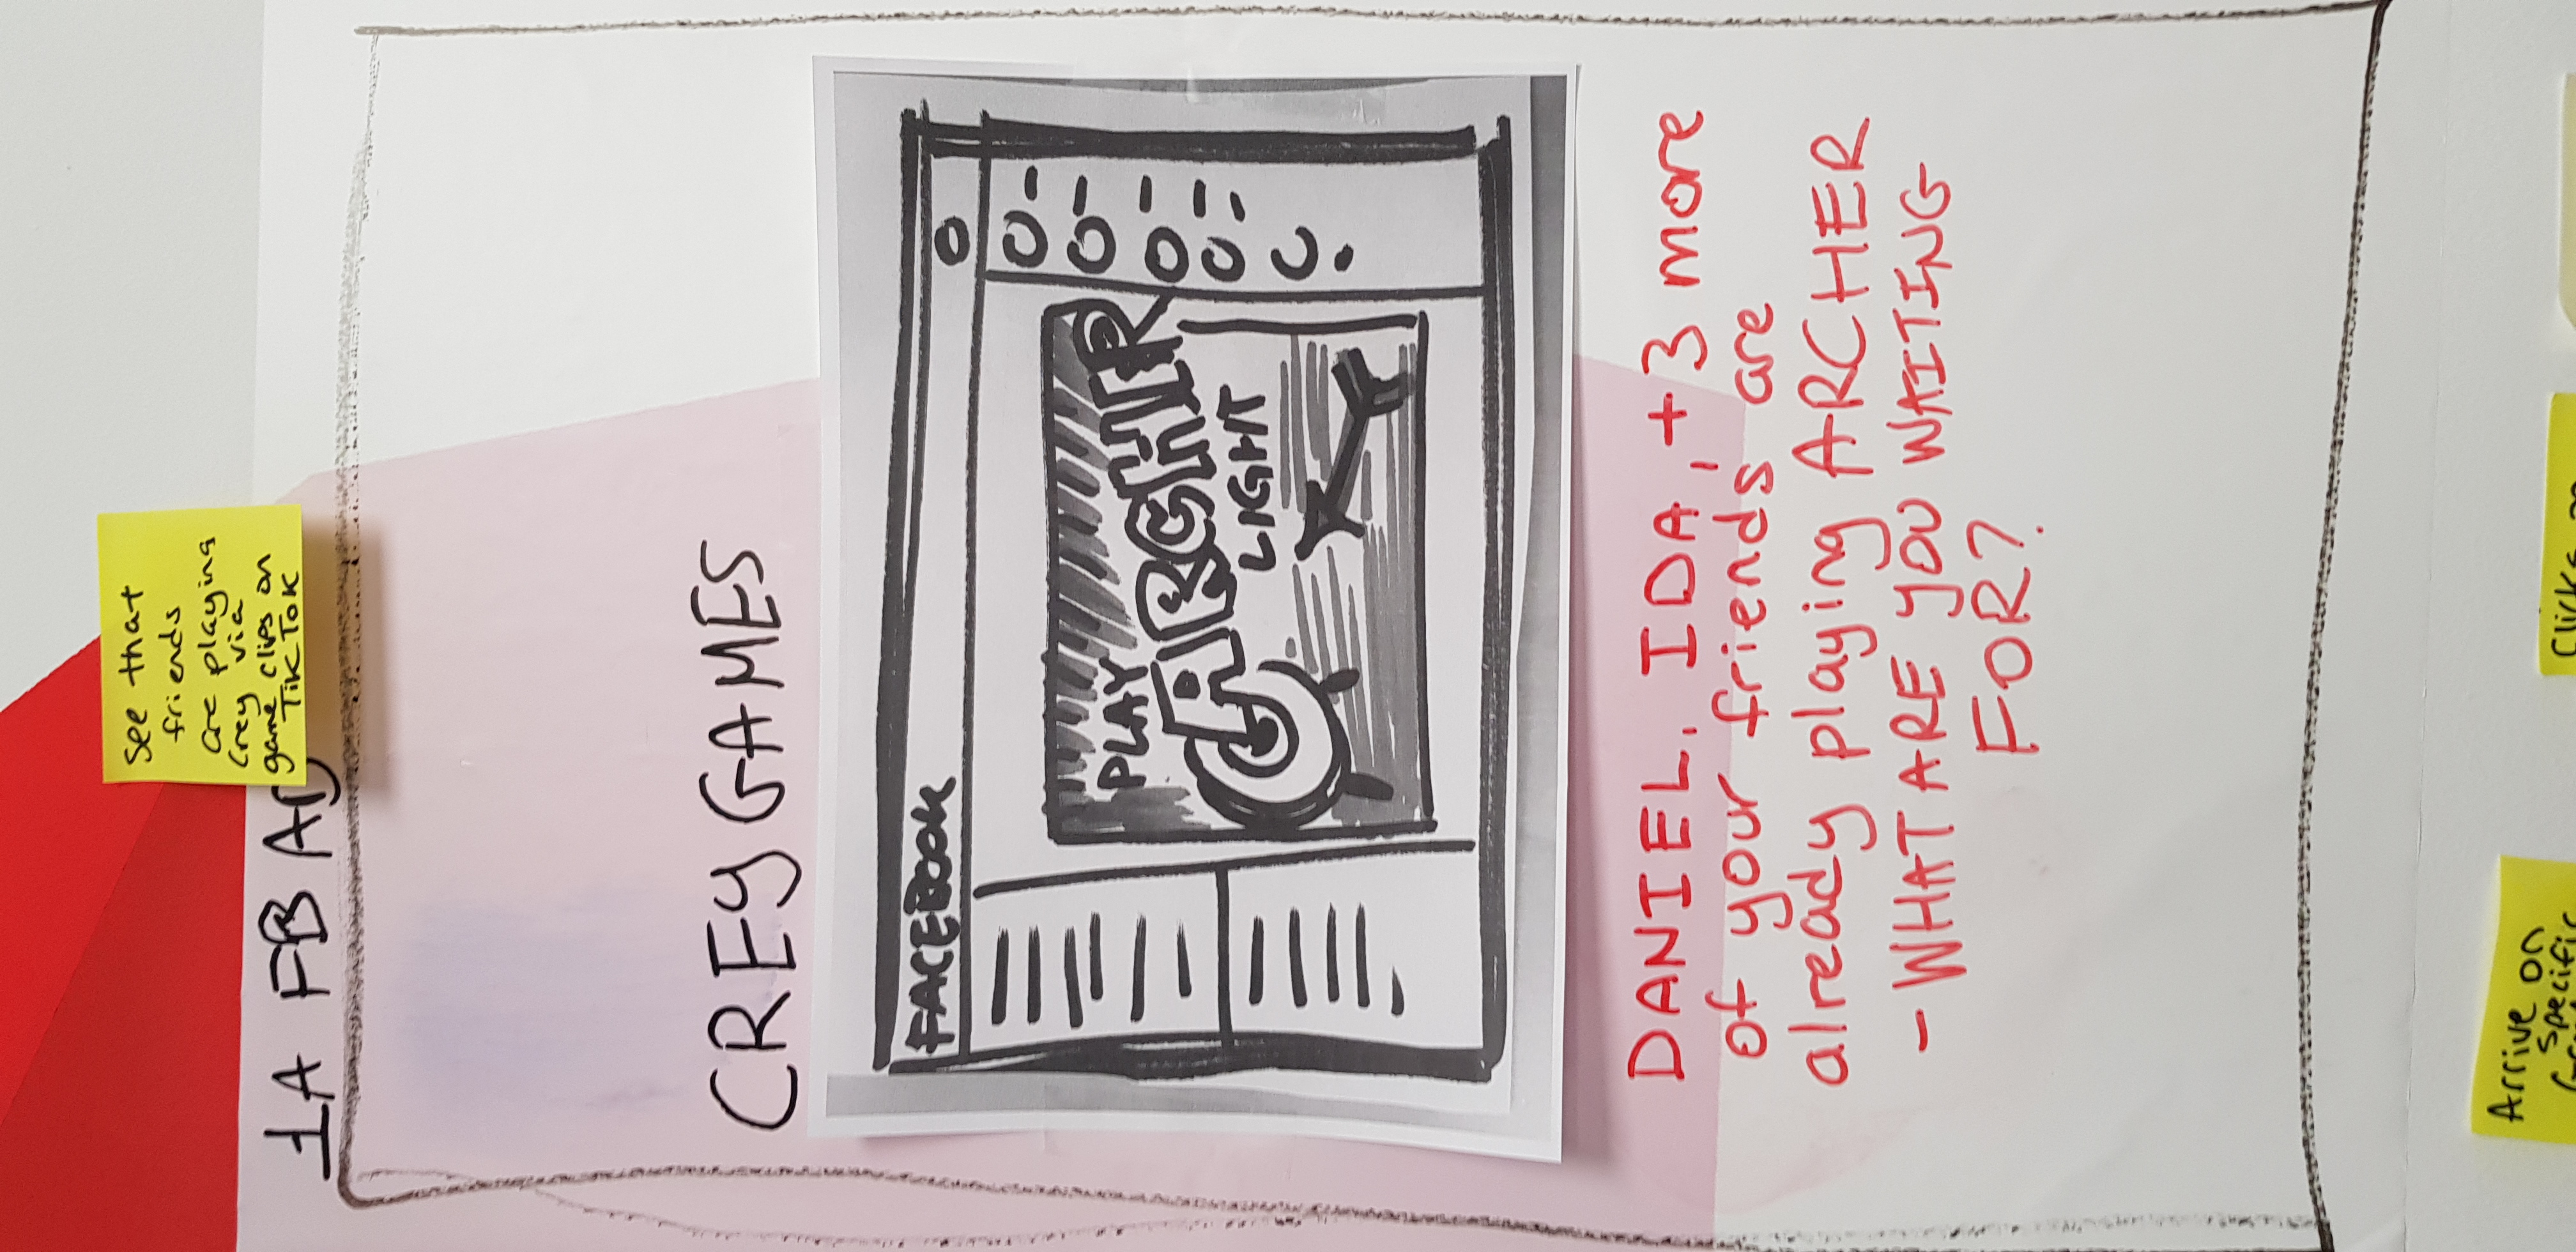 See that
friends
are playing
Crey via
game clips on
TikTok
1A FB AD
CREY GAMES
FACEBOOK
PLAY
ARCHER
LIGHT
DANIEL, IDA, +3 more
of your friends are
already playing ARCHER
- WHAT ARE YOU WAITING
FOR?
Arrive on
specific
Clicks on